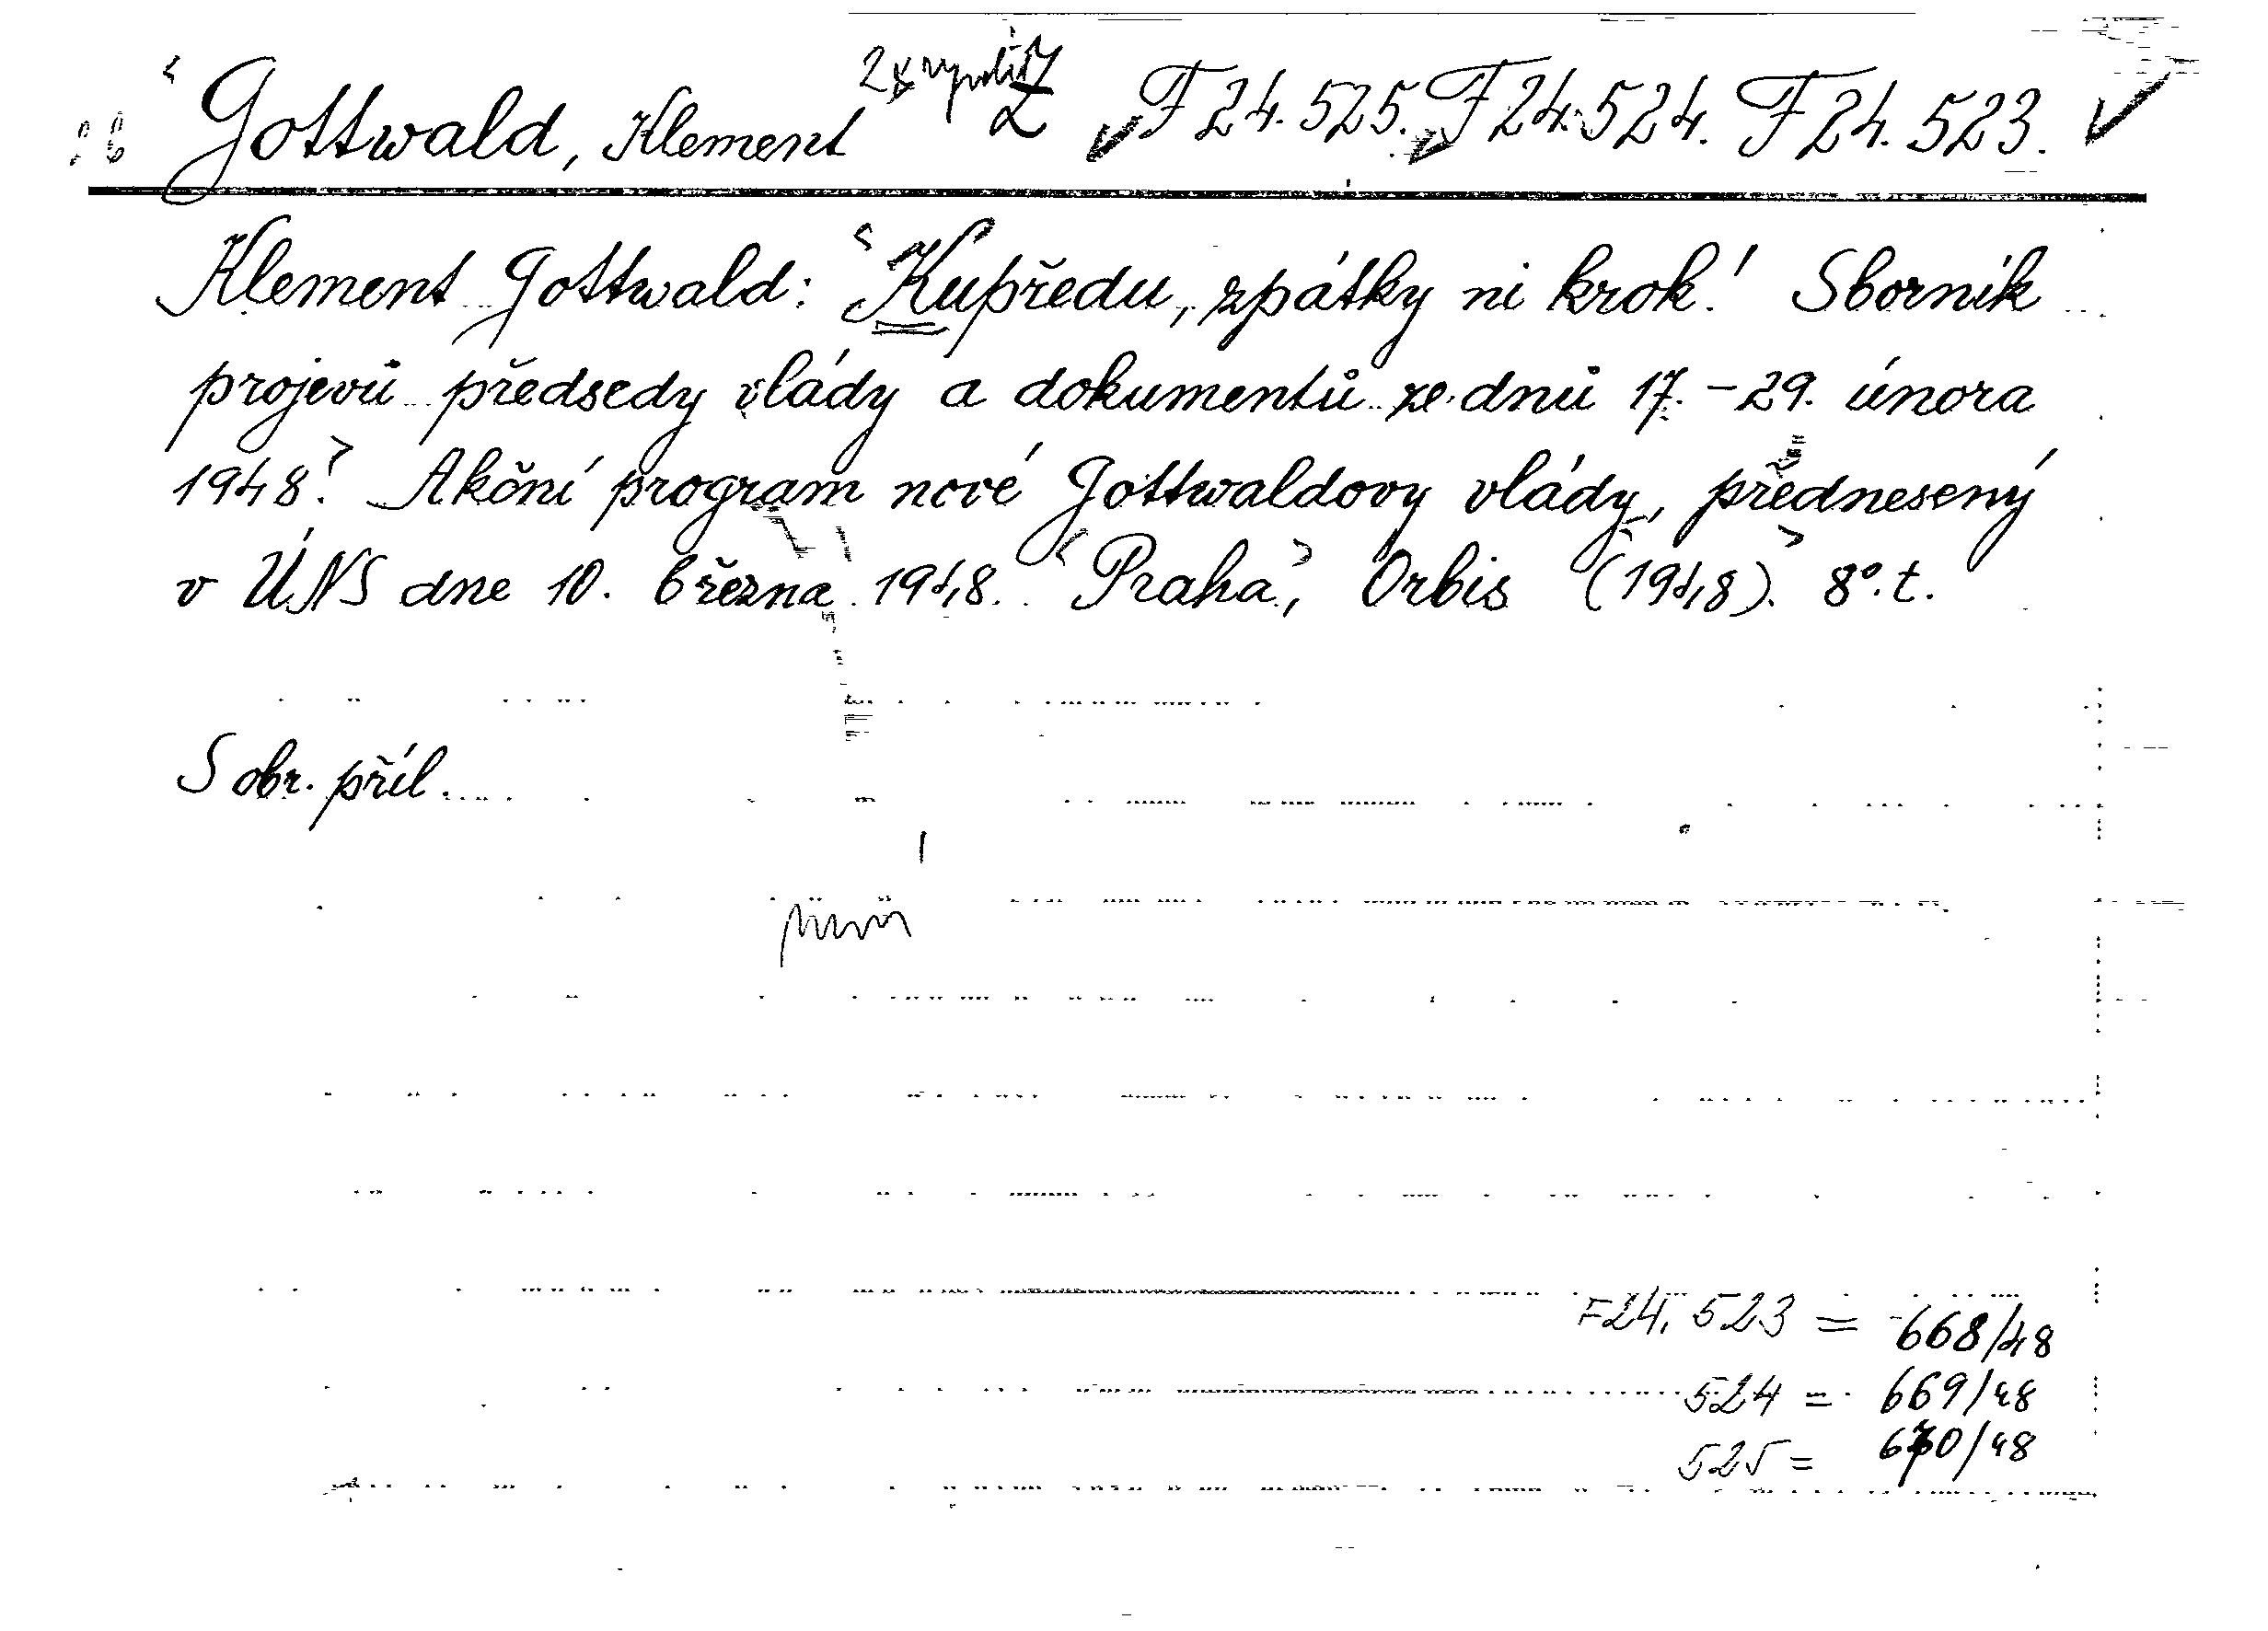 Gottwald, Klement F 24.525. F 24.524. F 24.523.
Klement Gottwald: Kupředu, zpátky ni krok! Sborník
projevů předsedy vlády a dokumentů ze dnů 17. - 29. února
1948. Akční program nové Gottwaldovy vlády, přednesený
v ÚNS dne 10. března 1948. Praha, Orbis (1948). 8°. t.
S obr. příl.
F24. 523 = 668/48
524 = 669/48
525 = 670/48